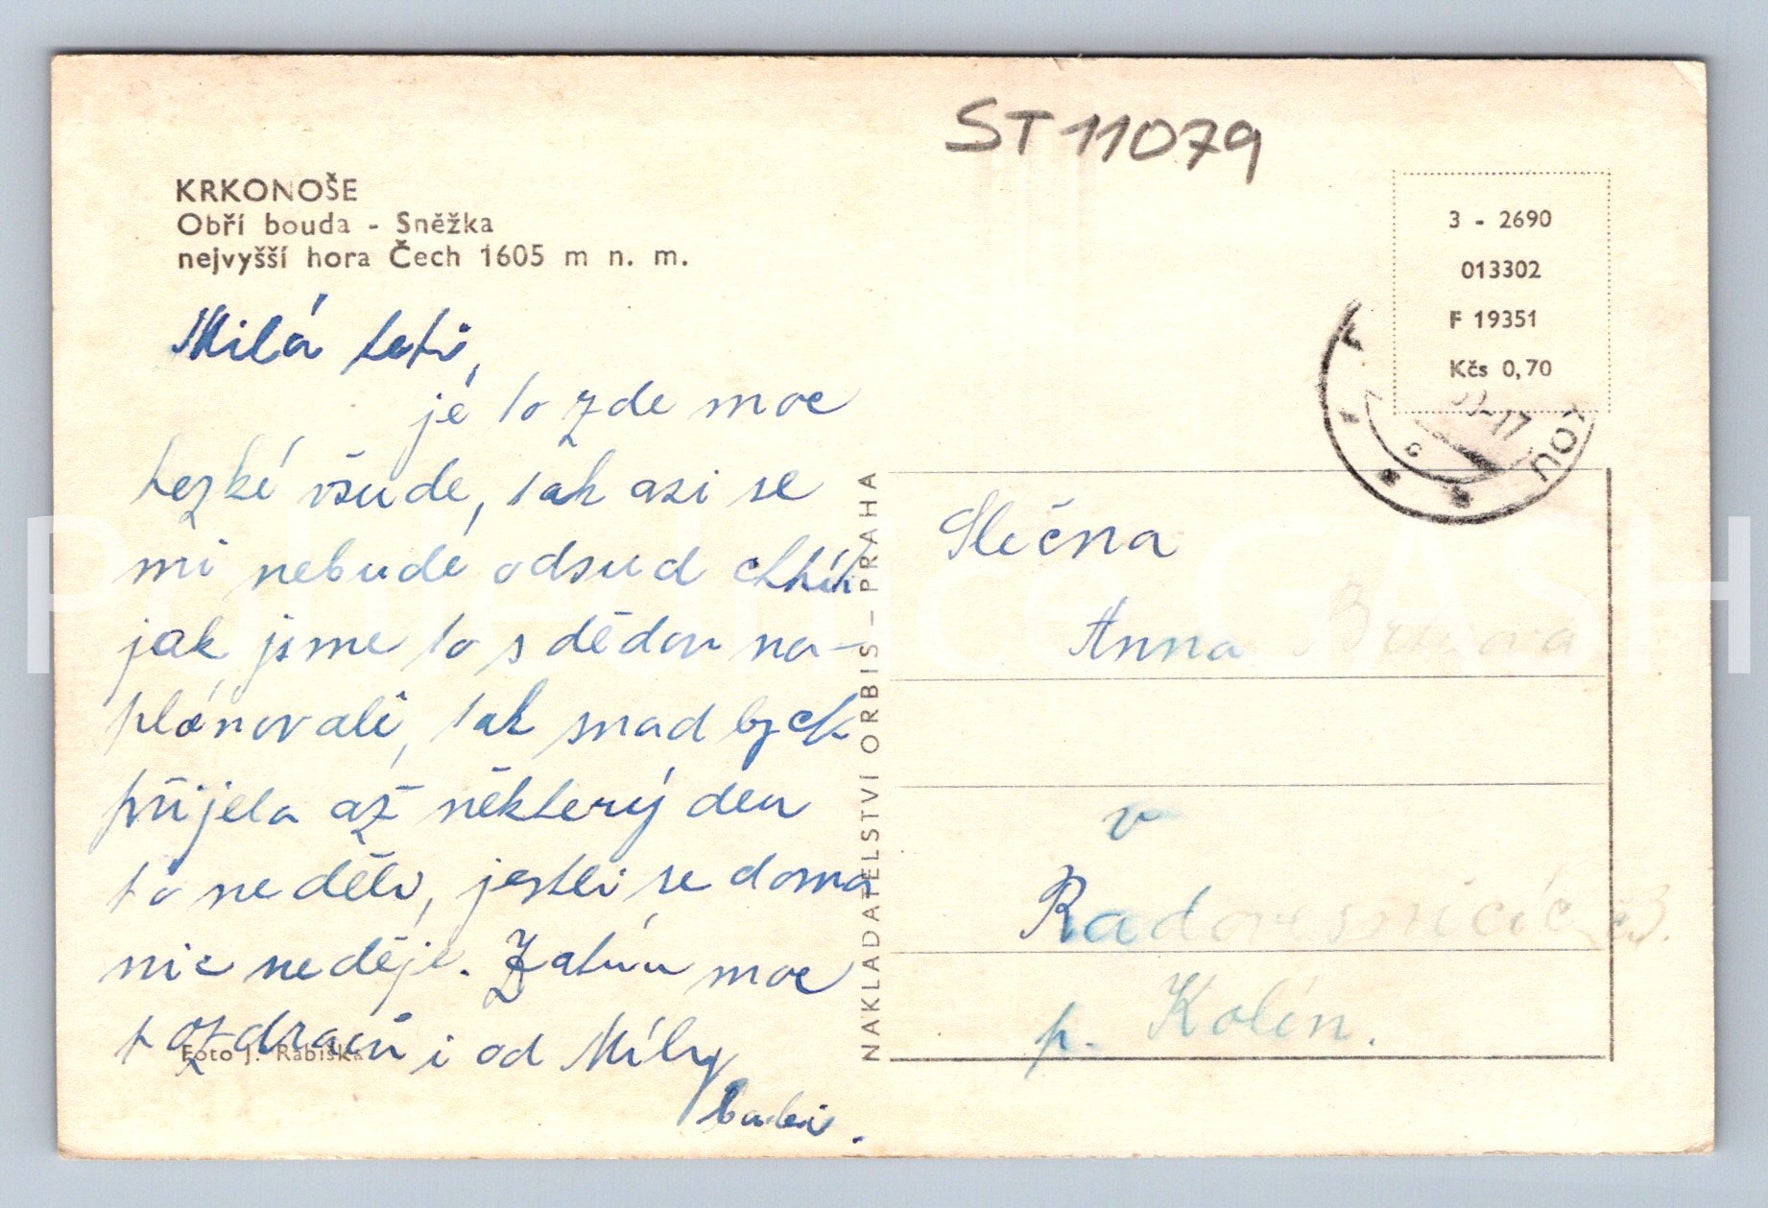 ST 11079
KRKONOŠE
Obří bouda - Sněžka
nejvyšší hora Čech 1605 m n. m.
3 - 2690
013302
F 19351
Kčs 0,70
Milá teti,
je to zde moc
hezké všude, tak asi se
mi nebude odsud chtít
jak jsme to s dědou na-
plánovali, tak snad bych
přijela až některý den
po neděli, jestli se doma
nic neděje. Zatím moc
pozdravů i od Míly
Foto J. Rabiška
NAKLADATELSTVÍ ORBIS - PRAHA
Slečna
Anna
v
Radovesnicíc
p. Kolín.